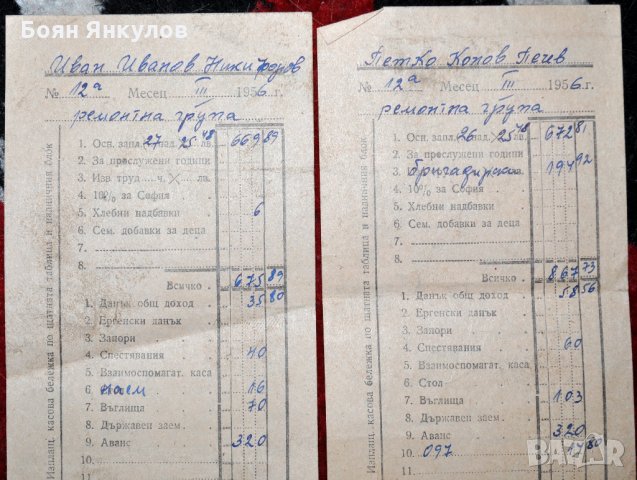 Боян Янкулов
Иван Иванов Никифоров
№ 12а Месец III 1956 г.
ремонтна група
1. Осн. запл. 27 над. 25 48 лв. 669 89
2. За прослужени години
3. Изв труд ч. × лв.
4. 10% за София
5. Хлебни надбавки 6
6. Сем. добавки за деца
7.
8.
Всичко 675 89
1. Данък общ доход 35 80
2. Ергенски данък
3. Запори
4. Спестявания 40
5. Взаимоспомагат. каса
6 наем 16
7 Въглища 70
8. Държавен заем
9. Аванс 320
10.
11
Изплащ. касова бележка по щатната таблица и надничния блок
Петко Пенев
№ 12а Месец III 1956 г.
ремонтна група
1. Осн. запл. 26 над. 25 48 лв. 672 81
2. За прослужени години
3 бригадирски 194 92
4. 10% за София
5. Хлебни надбавки
6. Сем. добавки за деца
7.
8.
Всичко 867 73
1. Данък общ доход 58 56
2. Ергенски данък
3. Запори
4. Спестявания 60
5. Взаимоспомагат. каса
6. Стол
7. Въглища 103
8. Държавен заем
9. Аванс 320
10. 097 17 80
11.
Изплащ. касова бележка по щатната таблица и надничния блок
BAZAR